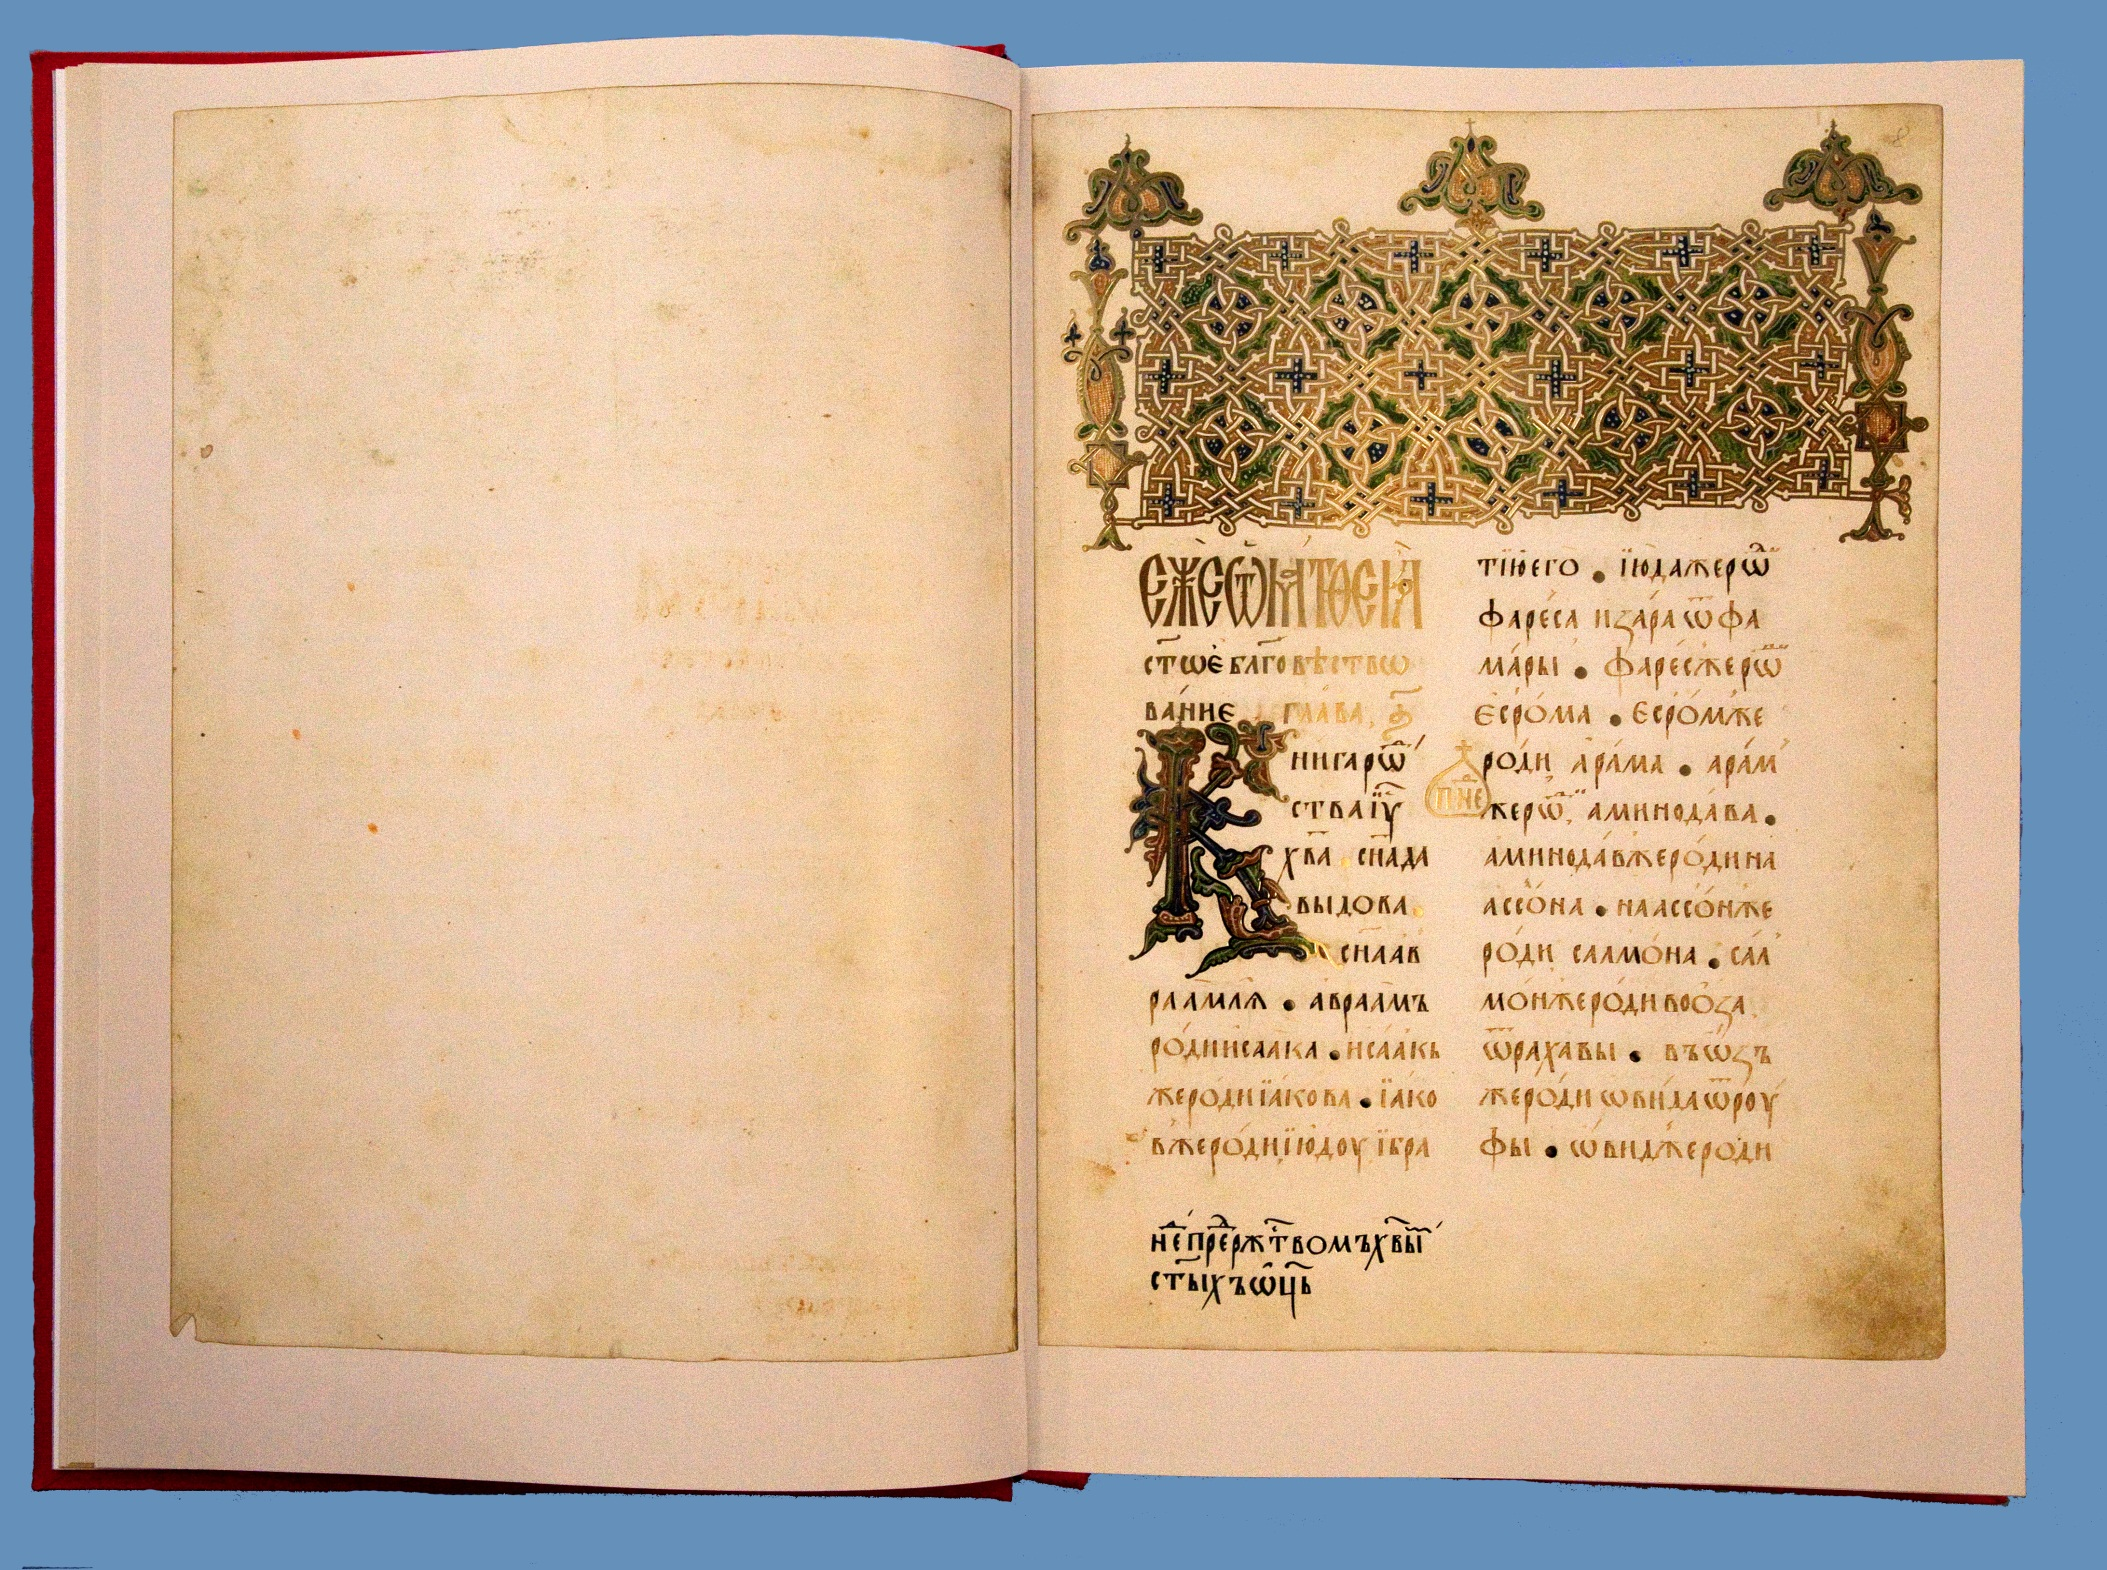 ЕЖЕ Ѿ МАТѲЕІА
ст҃ое бл҃говѣство
ва́ние глава а҃
Книга рѡⷣ
ства і҃у
хв҃а сн҃а да
выдова
сн҃а ав
раамлѧ • авраамъ
ро́ди исаа́ка • иса́акь
же ро́ди їа́кова • їа́ко
в же ро́ди їю́доу ї бра
тїю его • їюда же рѡⷣ
фаре́са и за́ра ѿ фа
ма́ры • фаре́с же рѡⷣ
есро́ма • есро́м же
роди ара́ма • ара́м
пⷣне
же рѡⷣ аминода́ва •
аминода́в же ро́ди на
ассо́на • наассо́н же
ро́ди салмо́на • сал
мо́н же ро́ди воо́за
ѿ рахавы • въѡзъ
же ро́ди ѡви́да ѿ роу́
фы • ѡ́вид же роди
нⷣе преⷣ ржⷭтвомъ хв҃ыⷨ
ст҃ыхъ ѡц҃ь